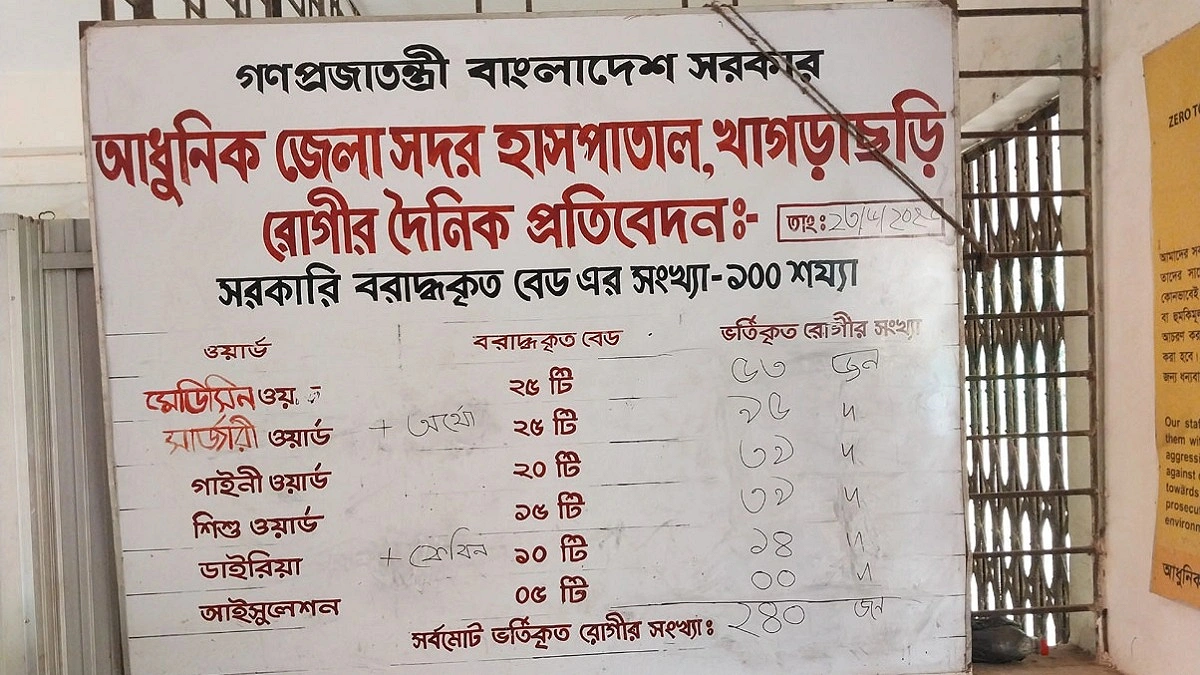 গণপ্রজাতন্ত্রী বাংলাদেশ সরকার
আধুনিক জেলা সদর হাসপাতাল, খাগড়াছড়ি
রোগীর দৈনিক প্রতিবেদন ঃ-
তাং ঃ
সরকারি বরাদ্ধকৃত বেড এর সংখ্যা-১০০ শয্যা
ওয়ার্ড বরাদ্ধকৃত বেড ভর্তিকৃত রোগীর সংখ্যা
মেডিসিন ২৫ টি ৫৩ জন
সার্জারী ওয়ার্ড + অর্থো ২৫ টি ৯৫ "
গাইনী ওয়ার্ড ২০ টি ৩৯ "
শিশু ওয়ার্ড ১৫ টি ৩৯ "
ডাইরিয়া + কেবিন ১০ টি ১৪ "
আইসুলেশন ০৫ টি ০০ "
সর্বমোট ভর্তিকৃত রোগীর সংখ্যাঃ ২৪০ জন
ZERO
আমাদের
তাদের
কোনভাবেই
বা
আচরণ
করা হবে।
জন্য
Our
them
against
towards
আধুনিক